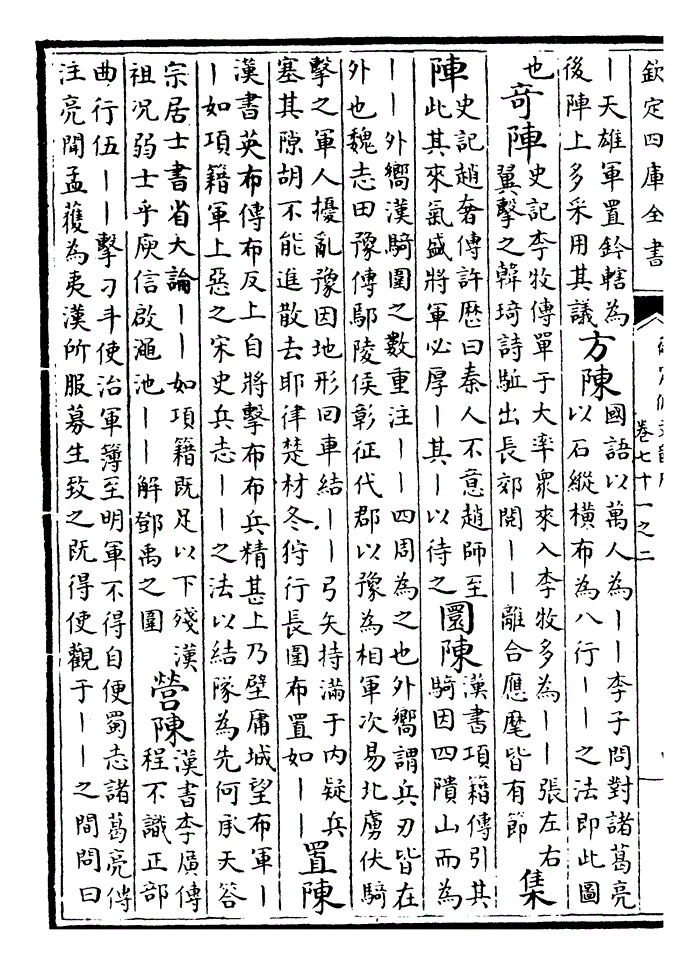 欽定四庫全書
卷七十一之二
丨天雄軍置鈐轄為
後陣上多采用其議
方陳
國語以萬人為丨丨李子問對諸葛亮
以石縱横布為八行丨丨之法即此圖
也
奇陣
史記李牧傳單于大率衆來入李牧多為丨丨張左右
翼擊之韓琦詩駈出長郊閱丨丨離合應麾皆有節
集
陣
史記趙奢傳許歷曰秦人不意趙師至
此其來氣盛將軍必厚丨其丨以待之
圜陳
漢書項籍傳引其
騎因四隤山而為
丨丨外嚮漢騎圍之數重注丨丨四周為之也外嚮謂兵刃皆在
外也魏志田豫傳鄢陵侯彰征代郡以豫為相軍次易北虜伏騎
擊之軍人擾亂豫因地形回車結丨丨弓矢持滿于内疑兵
塞其隙胡不能進散去耶律楚材冬狩行長圍布置如丨丨
置陳
漢書英布傳布反上自將擊布布兵精甚上乃壁庸城望布軍丨
丨如項籍軍上惡之宋史兵志丨丨之法以結隊為先何承天答
宗居士書省大論丨丨如項籍既足以下殘漢
祖況弱士乎庾信啟澠池丨丨解鄧禹之圍
營陳
漢書李廣傳
程不識正部
曲行伍丨丨擊刁斗使治軍簿至明軍不得自便蜀志諸葛亮傳
注亮聞孟獲為夷漢所服募生致之既得使觀于丨丨之間問曰